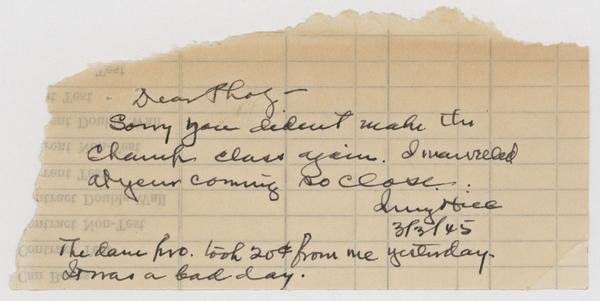 Dear Phog—
Sorry you dident make the
Champ class again. I marveled
at your coming so close.
Hill
3/3/45
The dam pro. took 20¢ from me yesterday.
It was a bad day.
Test
Test
Double Wall
Non-Test
Test
Contract Double Wall
Contract Non-Test
Contract
Can